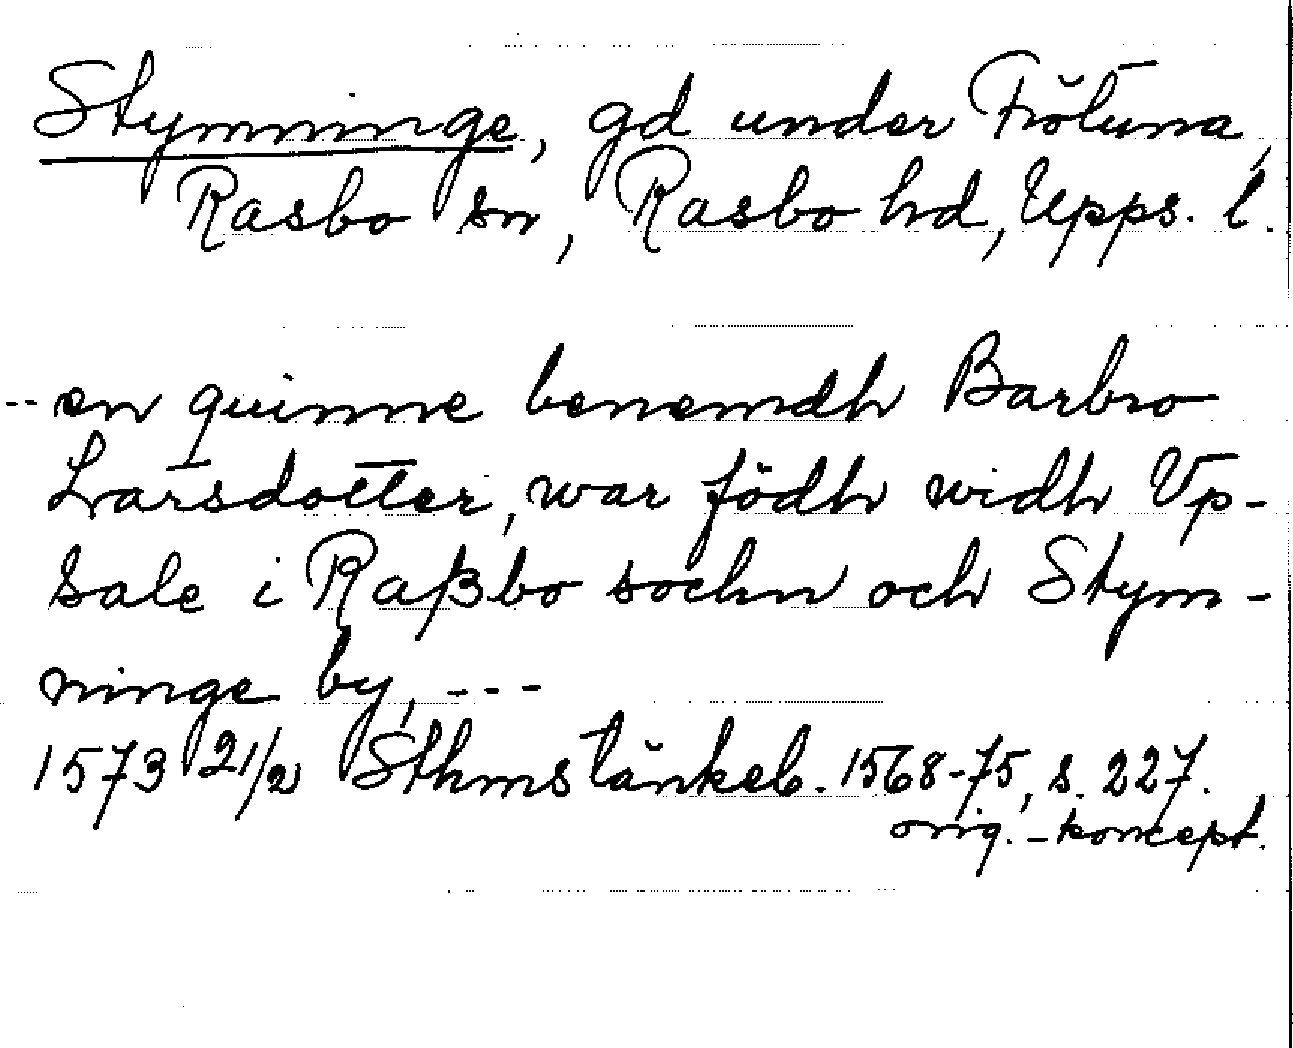 Stymninge, gd under Frötuna,
Rasbo sn, Rasbo hd, Upps. l.
-- en quinne benemdh Barbro
Larsdotter, war födh widh Vp-
sale i Raßbo sochn och Stym-
ninge by, ---
1573 21/2 Sthmstänkeb. 1568-75, s. 227.
orig.-koncept.